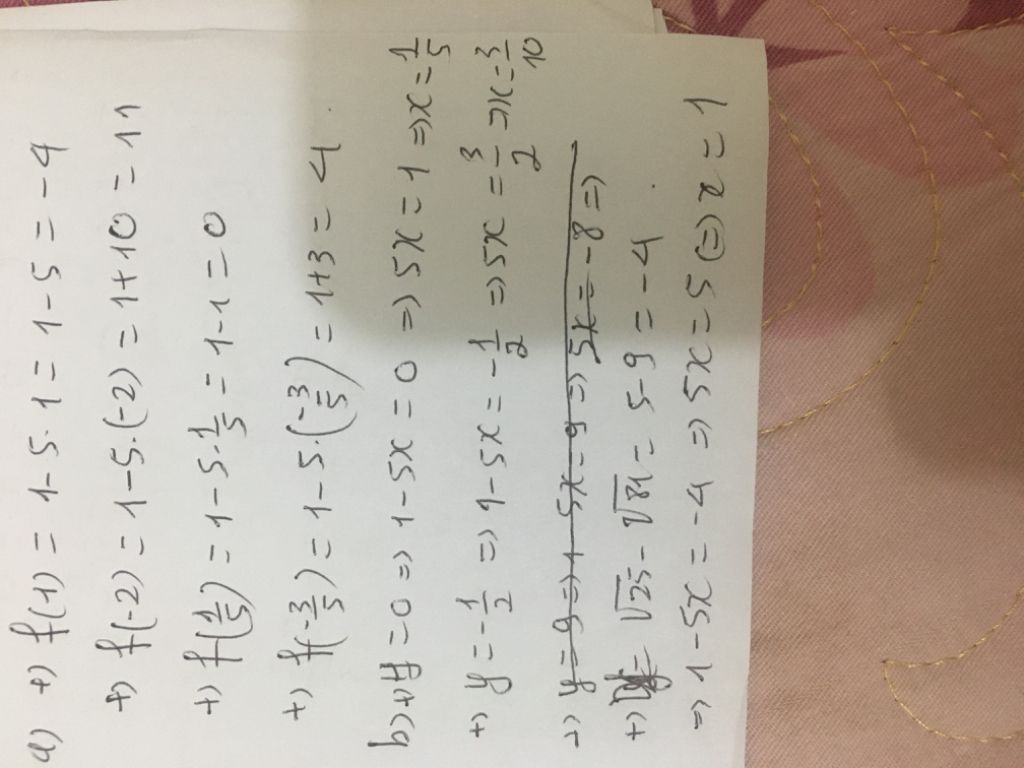 a) +) f(1) = 1-5.1 = 1-5 = -4
+) f(-2) = 1-5.(-2) = 1+10 = 11
+) f(1/5) = 1-5.1/5 = 1-1 = 0
+) f(-3/5) = 1-5.(-3/5) = 1+3 = 4.
b) +) y = 0 => 1-5x = 0 => 5x = 1 => x = 1/5
+) y = -1/2 => 1-5x = -1/2 => 5x = 3/2 => x = 3/10
+) y = 9 => 1-5x = 9 => 5x = -8 =>
+) y = √25 - √81 = 5-9 = -4.
=> 1-5x = -4 => 5x = 5 (=) x = 1